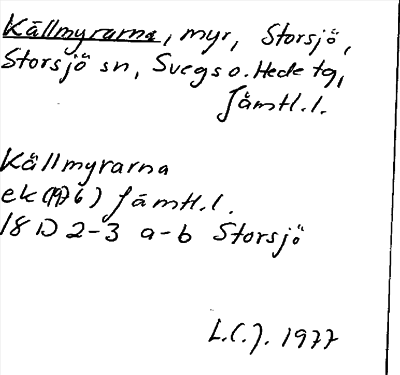 Källmyrarna, myr, Storsjö,
Storsjö sn, Svegs o. Hede tg,
Jämtl.l.
Källmyrarna
ek (1976) Jämtl.l.
18 D 2-3 a-b Storsjö
L.C.J. 1977